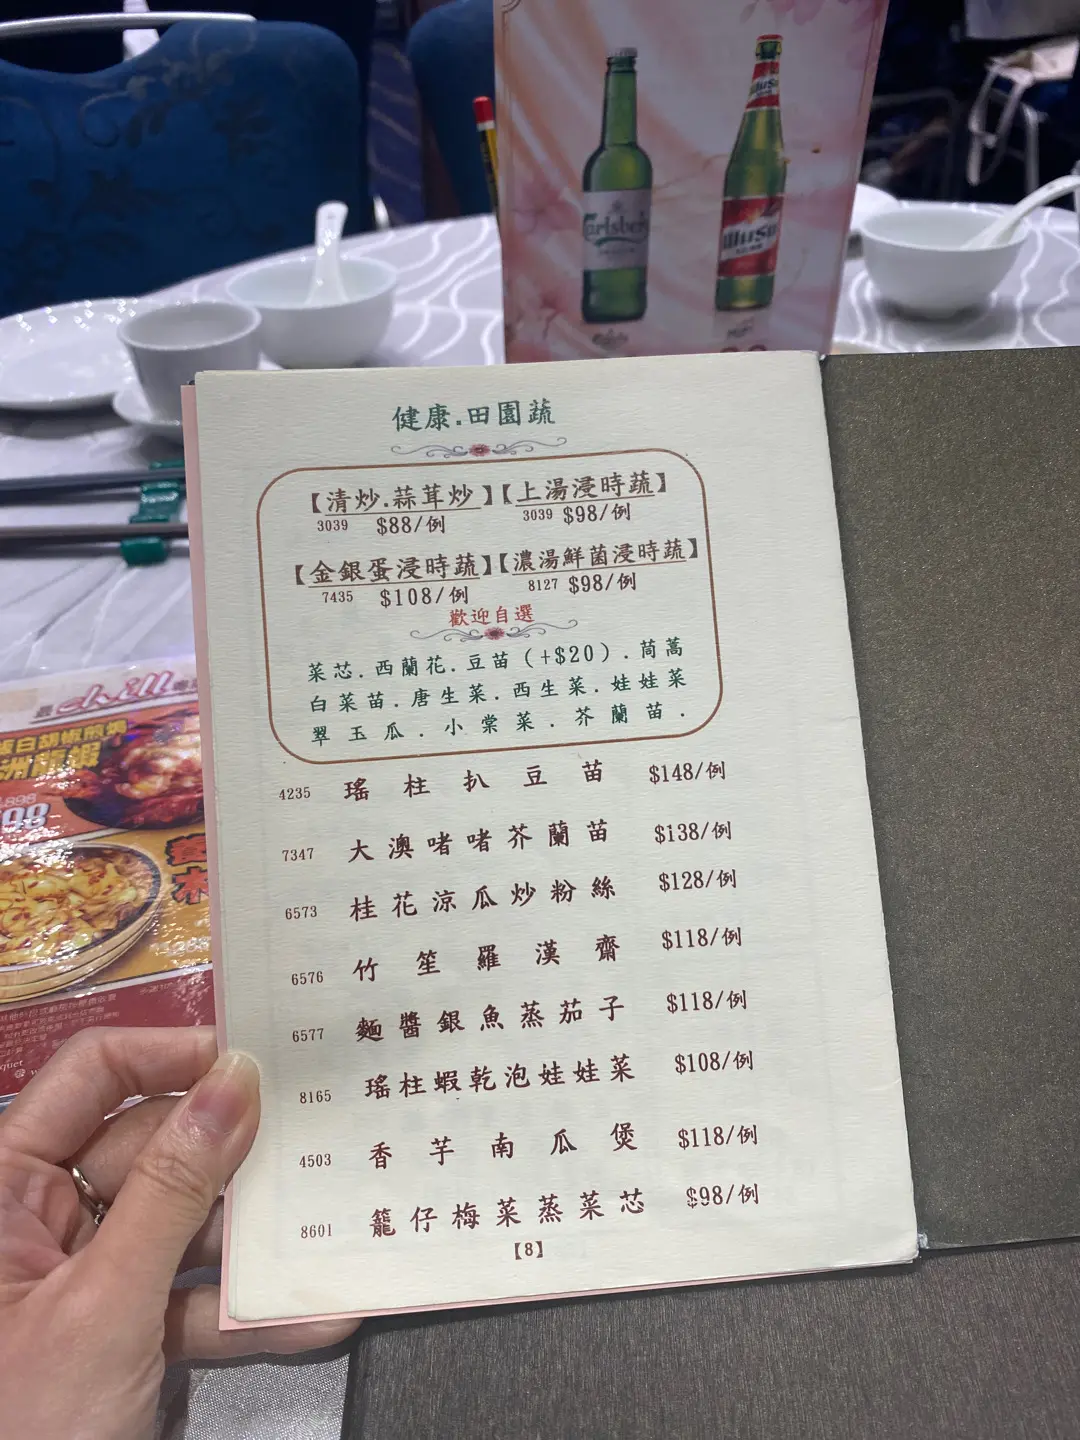 Carlsberg
WUSU
健康.田園蔬
【清炒.蒜茸炒】【上湯浸時蔬】
3039 $88/例 3039 $98/例
【金銀蛋浸時蔬】【濃湯鮮菌浸時蔬】
7435 $108/例 8127 $98/例
歡迎自選
菜芯.西蘭花.豆苗(+$20).茼蒿
白菜苗.唐生菜.西生菜.娃娃菜
翠玉瓜.小棠菜.芥蘭苗.
4235 瑤柱扒豆苗 $148/例
7347 大澳啫啫芥蘭苗 $138/例
6573 桂花涼瓜炒粉絲 $128/例
6576 竹笙羅漢齋 $118/例
6577 麵醬銀魚蒸茄子 $118/例
8165 瑤柱蝦乾泡娃娃菜 $108/例
4503 香芋南瓜煲 $118/例
8601 籠仔梅菜蒸菜芯 $98/例
【8】
chill
白胡椒煎焗
洲龍蝦